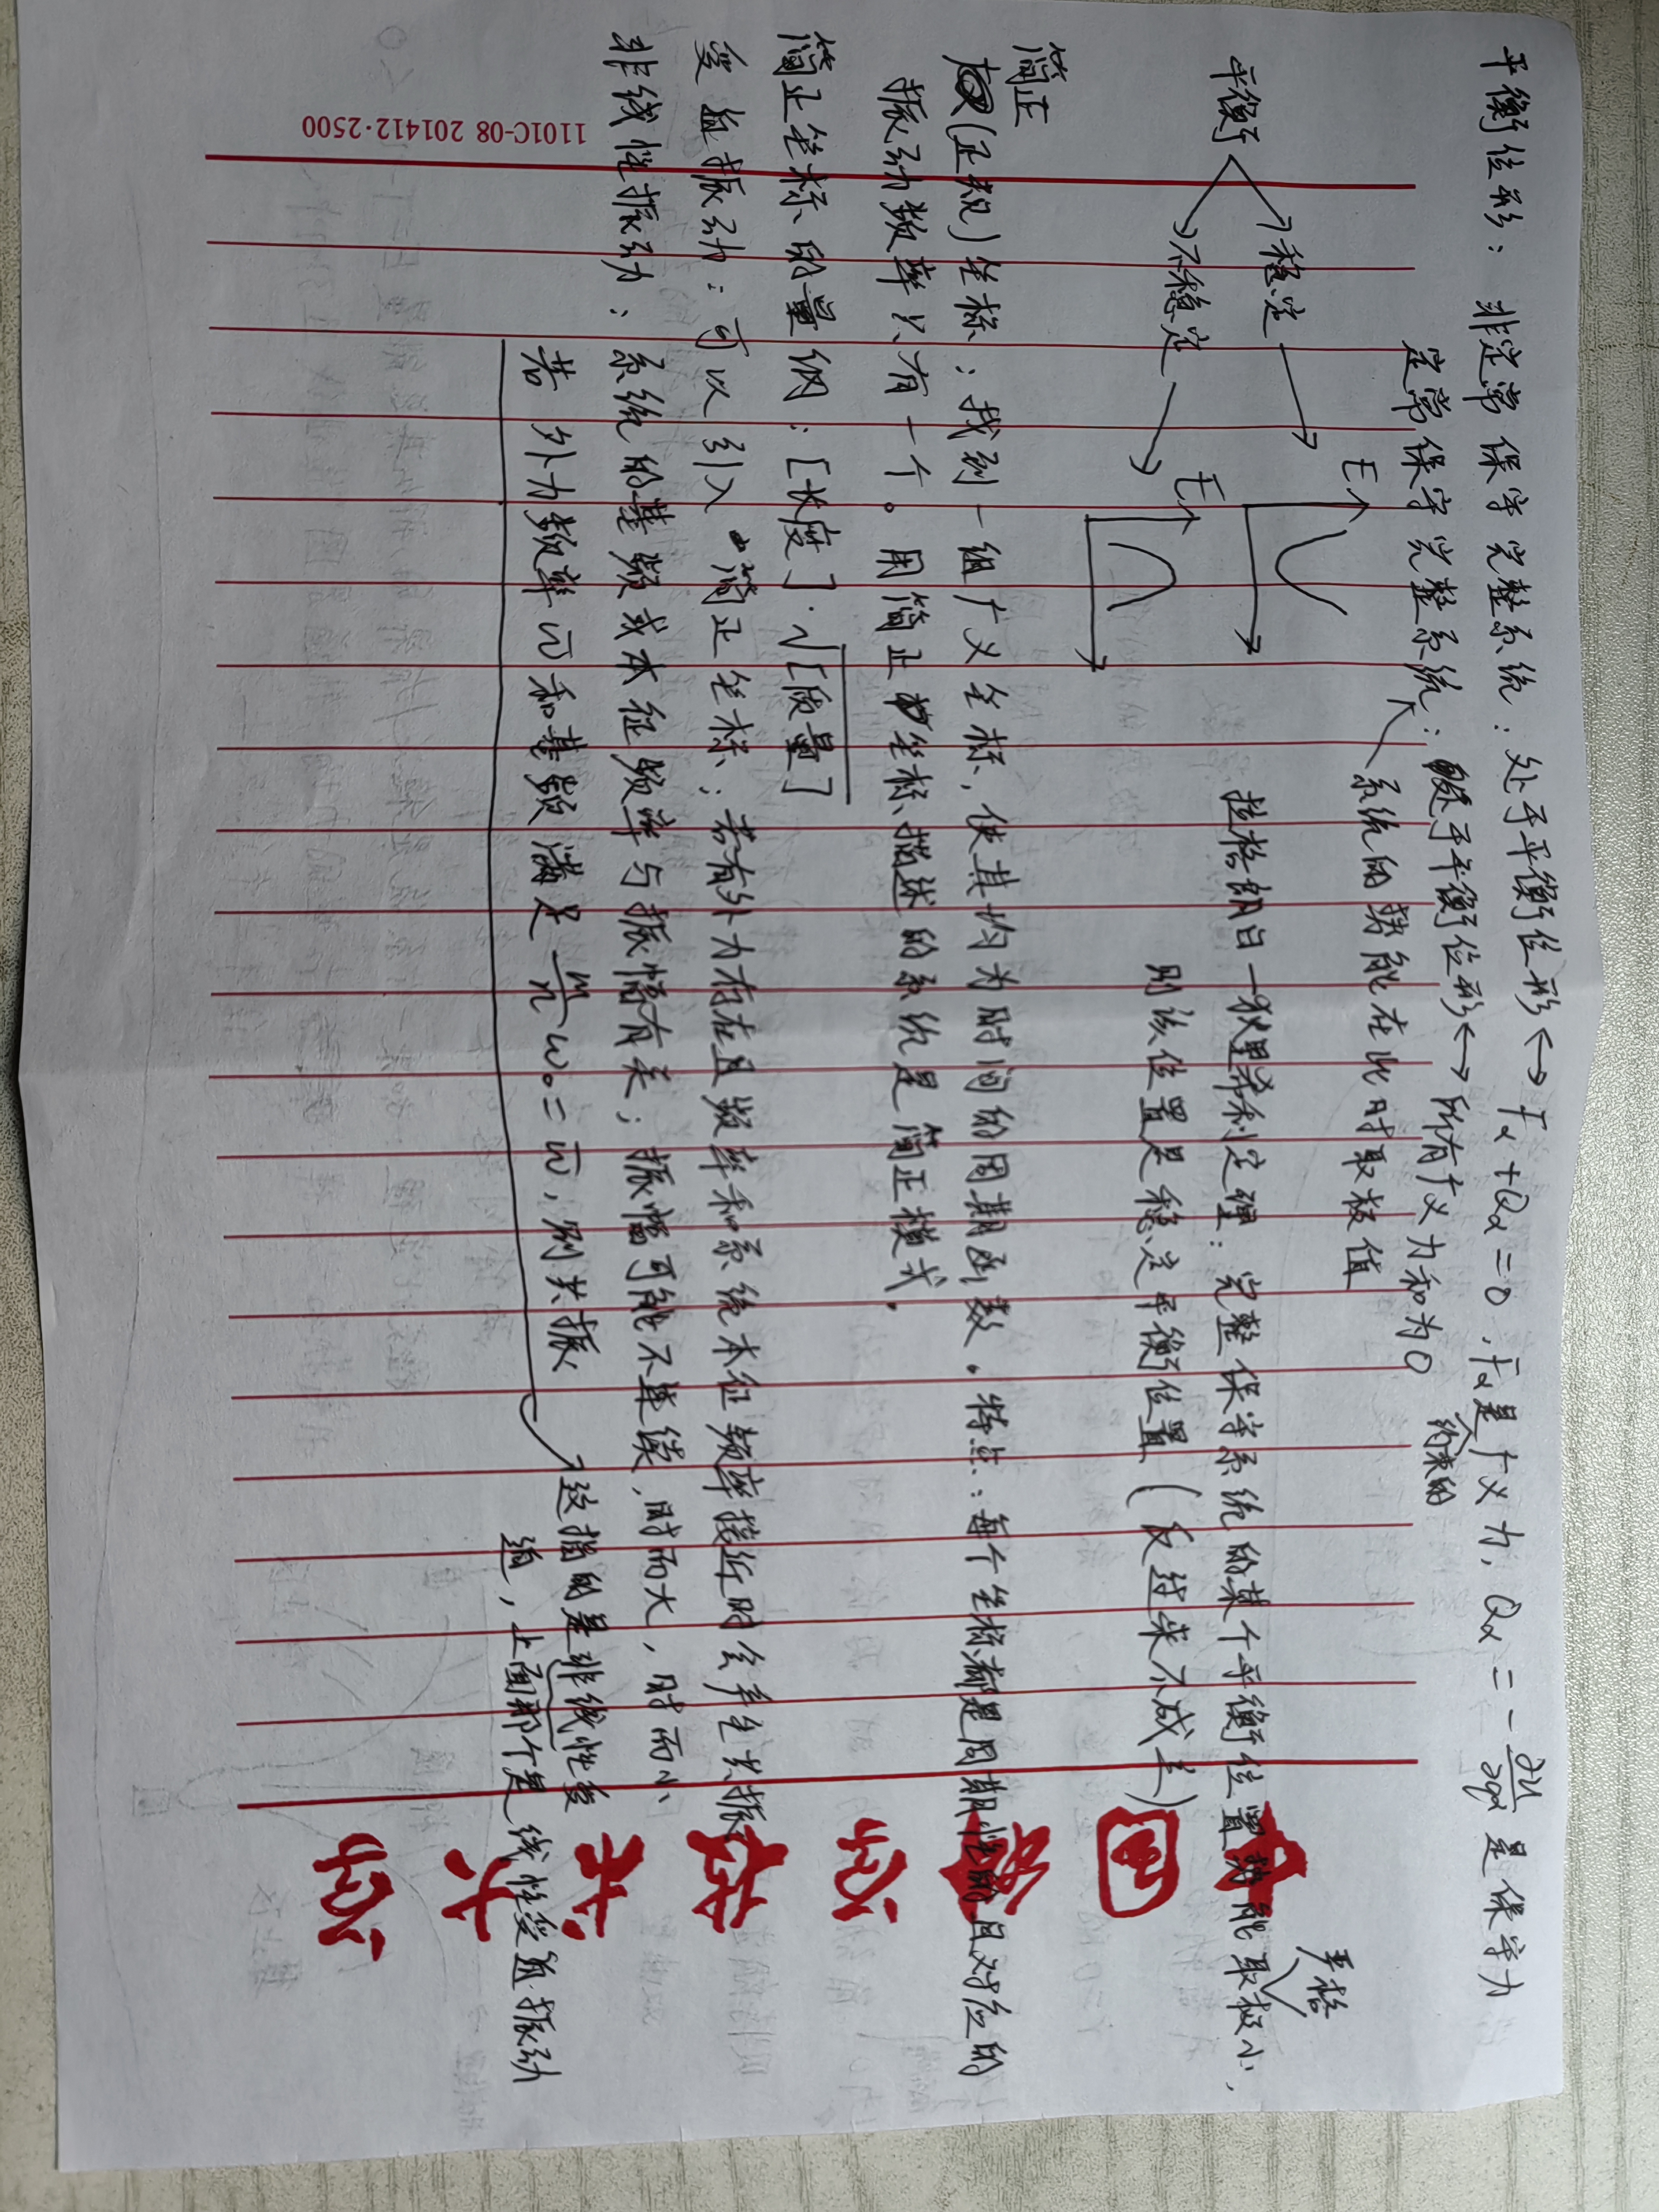 平衡位形：非定常保守完整系统：处于平衡位形 ↔ Fα + Qα = 0 , Fα是约束的广义力, Qα = -∂U/∂qα 是保守力
定常保守完整系统：处于平衡位形 ↔ 所有广义力和为0
系统的势能在此时取极值
平衡
稳定
不稳定
E
E
拉格朗日一狄里希利定理：完整保守系统的某个平衡位置势能取严格极小，
则该位置是稳定平衡位置（反过来不成立）
简正(正规)坐标：找到一组广义坐标，使其均为时间的周期函数。特点：每个坐标都是周期性的且对应的
振动频率只有一个。用简正坐标描述的系统是简正模式。
简正坐标的量纲：[长度]·√[质量]
受迫振动：可以引入简正坐标；若有外力存在且频率和系统本征频率接近时会产生共振
非线性振动：系统的基频或本征频率与振幅有关；振幅可能不连续，时而大，时而小
若外力频率ω̄和基频满足 m/n ω₀ = ω̄，则共振
这指的是非线性受
迫，上面那个是线性受迫振动
中国
科学技术大学
1101C-08 201412·2500